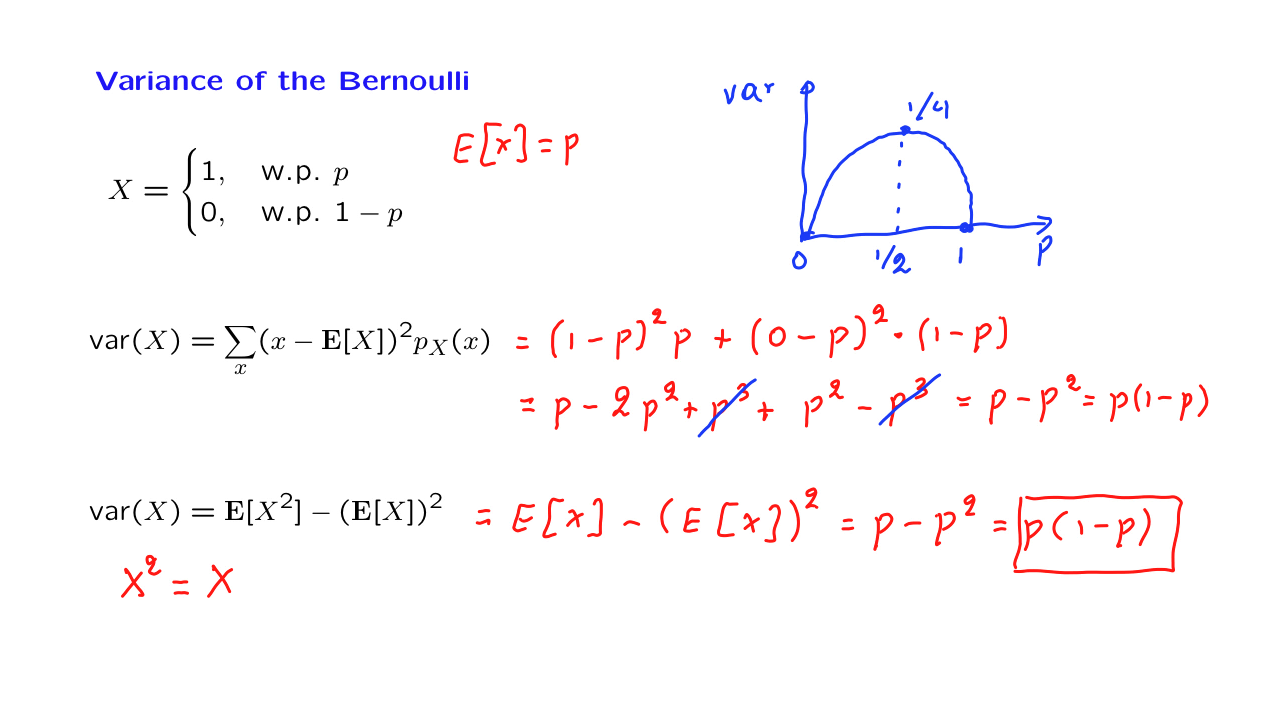 Variance of the Bernoulli
X = {1, w.p. p
0, w.p. 1 − p
E[X] = p
var
1/4
0 1/2 1 p
var(X) = ∑ₓ(x − E[X])²p_X(x) = (1-p)² p + (0-p)² · (1-p)
= p - 2p² + p³ + p² - p³ = p - p² = p(1-p)
var(X) = E[X²] − (E[X])² = E[X] - (E[X])² = p - p² = p(1-p)
X² = X